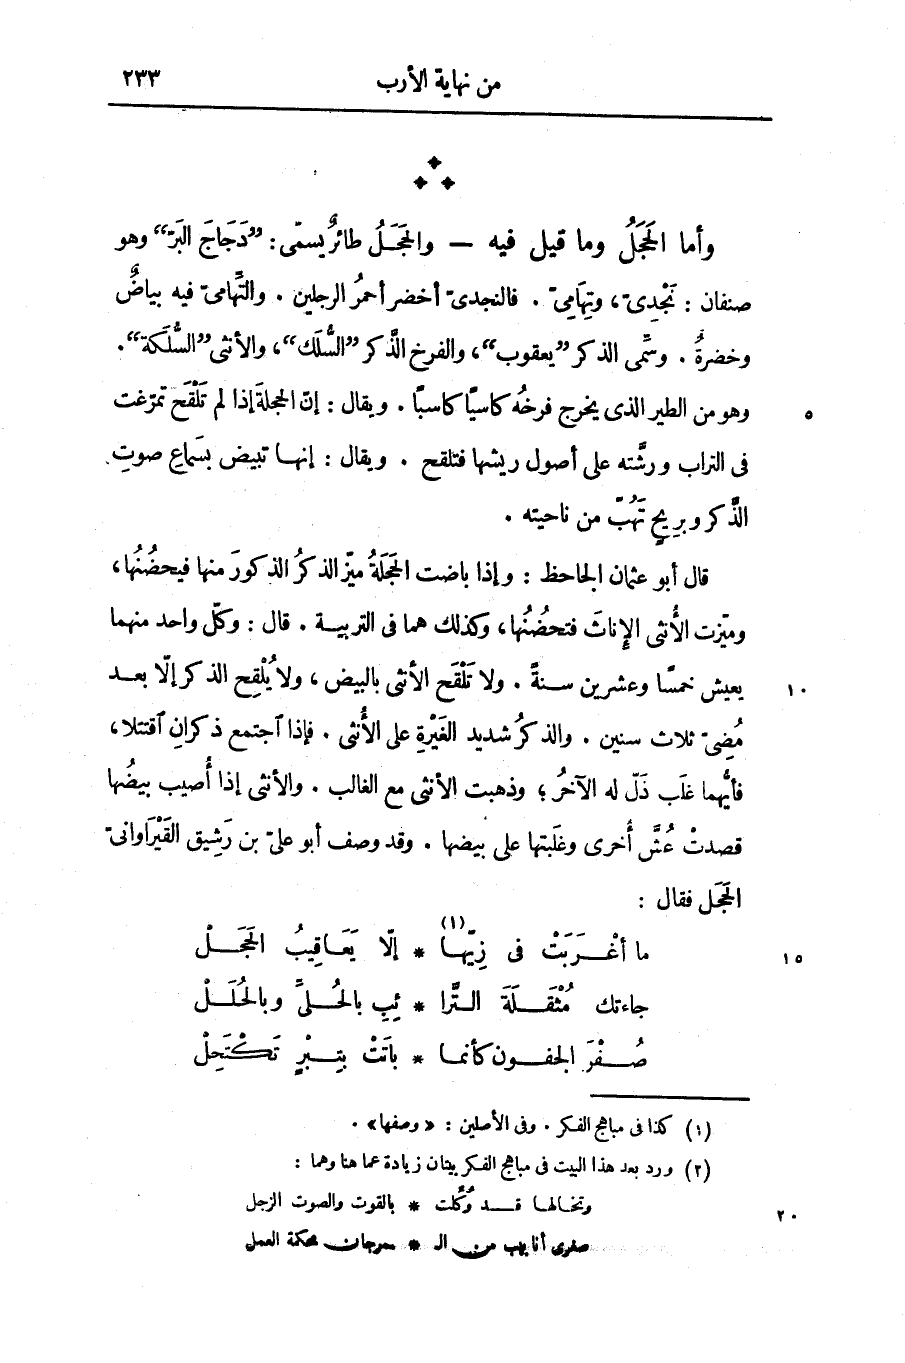 من نهاية الأرب ٢٣٣
وأما الحَجَلُ وما قيل فيه — والحَجَلُ طائرٌ يسمّى: ”دَجَاجَ البَرّ“ وهو
صنفان : نَجْدِىّ، وتِهَامِىّ . فالنجدىّ أخضر أحمرُ الرجلين . والتِّهَامىّ فيه بياضٌ
وخضرةٌ . وسمِّى الذكر ”يعقوب“، والفرخ الذَّكر ”السُّلَك“، والأنثى ”السُّلَكة“.
وهو من الطير الذى يخرج فرخُه كاسيًا كاسبًا . ويقال : إنّ الحجلةَ إذا لم تَلْقَح تمرّغت
٥
فى التراب ورشَّته على أصول ريشها فتلقح . ويقال : إنها تبيض بسَماع صوتِ
الذَّكر وبريحٍ تَهُبّ من ناحيته .
قال أبو عثمان الجاحظ : وإذا باضت الحَجَلَةُ ميّز الذكرُ الذكورَ منها فيحضُنُها،
وميّزت الأُنثى الإناثَ فتحضُنُها، وكذلك هما فى التربية . قال : وكلّ واحد منهما
يعيش خمسًا وعشرين سنةً . ولا تَلْقَح الأنثى بالبيض، ولا يُلْقِح الذكر إلّا بعد
١٠
مُضِىّ ثلاث سنين . والذكرُ شديد الغَيْرةِ على الأُنثى . فإذا ٱجتمع ذكرانِ ٱقتتلا،
فأيُّهما غلَب ذَلّ له الآخرُ؛ وذهبت الأنثى مع الغالب . والأنثى إذا أُصيب بيضُها
قصدتْ عُشَّ أُخرى وغلَبتها على بيضها . وقد وصف أبو علىّ بن رَشِيق القَيْرَاوانىّ
الحَجَل فقال :
ما أغْرَبَتْ فى زِيّها (١) * إلّا يَعَاقِيبُ الحَجَلْ
١٥
جاءتك مُثْقَلَةَ التَّرا * ئبِ بالحُلىِّ وبالحُلَلْ
صُفْرَ الجفون كأنما * باتَتْ بتِبْرٍ تَكْتَحِلْ
(١) كذا فى مباهج الفكر . وفى الأصلين : «وصفها» .
(٢) ورد بعد هذا البيت فى مباهج الفكر بيتان زيادة عما هنا وهما :
وتخالها قد وُكِّلت * بالقوت والصوت الزجل
٢٠
صفرى أنابيب من الـ * ـمرجان محكمة العمل